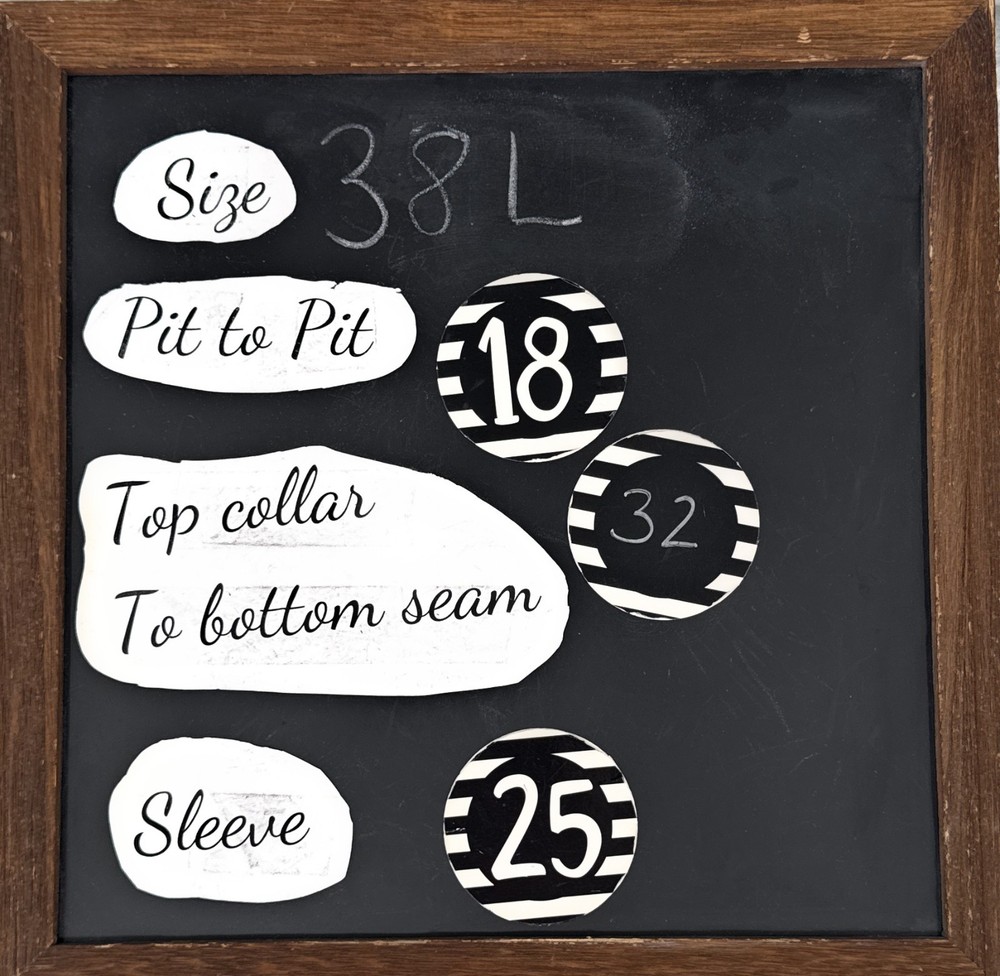 Size 38L
Pit to Pit 18
Top collar
To bottom seam 32
Sleeve 25